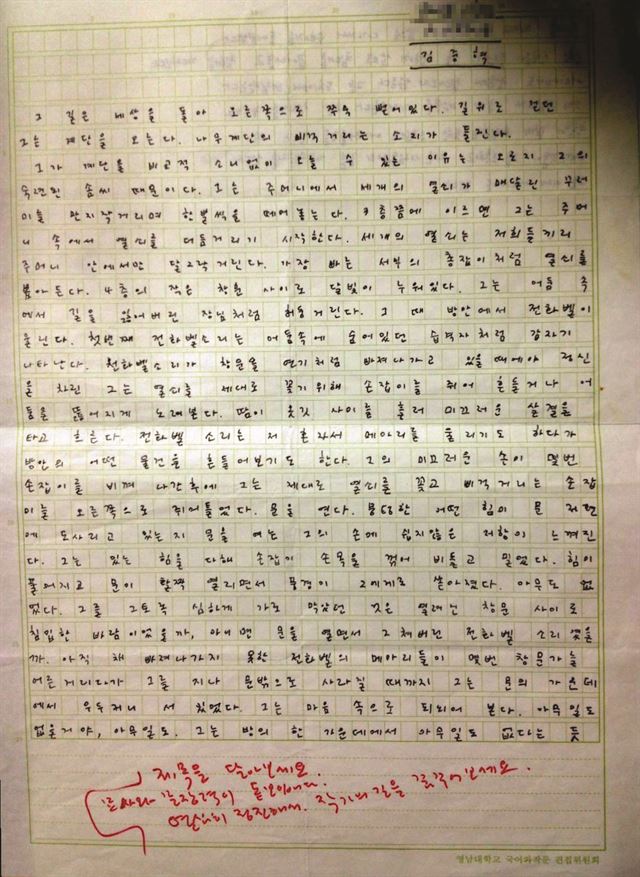 김중혁
그 길은 세상을 돌아 오른쪽으로 쭈욱 뻗어있다. 길위로 걷던
그는 계단을 오른다. 나무계단의 삐걱거리는 소리가 들린다.
그가 계단을 비교적 소리없이 오를 수 있는 이유는 오로지 그의
숙련된 솜씨 때문이다. 그는 주머니에서 세개의 열쇠가 매달린 꾸러
미를 만지작거리며 한발씩을 떼어놓는다. 3층쯤에 이르면 그는 주머
니 속에서 열쇠를 더듬거리기 시작한다. 세개의 열쇠는 저희들끼리
주머니 안에서만 달그락거린다. 가장 빠른 서부의 총잡이처럼 열쇠를
뽑아든다. 4층의 작은 창문 사이로 달빛이 누워있다. 그는 어둠 속
에서 길을 잃어버린 장님처럼 허둥거린다. 그 때 방안에서 전화벨이
울린다. 첫번째 전화벨소리는 어둠속에 숨어있던 습격자처럼 갑자기
나타난다. 전화벨소리가 창문을 연기처럼 빠져나가고 있을때에야 정신
을 차린 그는 열쇠를 제대로 꽂기위해 손잡이를 쥐어 흔들거나 어
둠을 뚫어지게 노려본다. 땀이 옷깃 사이를 흘러 미끄러운 살결을
타고 흐른다. 전화벨 소리는 저 혼자서 메아리를 울리기도 하다가
방안의 어떤 물건을 흔들어보기도 한다. 그의 미끄러운 손이 몇번
손잡이를 비껴 나간후에 그는 제대로 열쇠를 꽂고 삐걱거리는 손잡
이를 오른쪽으로 쥐어틀었다. 문을 연다. 어떤 힘이 문 저편
에 도사리고 있는지 문을 여는 그의 손에 쉽지않은 저항이 느껴진
다. 그는 있는 힘을 다해 손잡이 손목을 꺾어 비틀고 밀었다. 힘이
풀어지고 문이 활짝 열리면서 풍경이 그에게로 쏟아졌다. 아무도 없
었다. 그를 그토록 심하게 가로 막았던 것은 열려진 창문 사이로
침입한 바람이었을까, 아니면 문을 열면서 그쳐버린 전화벨 소리였을
까. 아직 채 빠져나가지 못한 전화벨의 메아리들이 몇번 창문가를
어른거리다가 그를 지나 문밖으로 사라질 때까지 그는 문의 가운데
에서 우두커니 서 있었다. 그는 마음 속으로 되뇌어 본다. 아무일도
없을거야, 아무일도. 그는 방의 한 가운데에서 아무일도 없다는 듯
제목을 달아보세요
묘사와 긴장력이 돋보이네요.
열심히 정진해서. 작가의 길을 걸어보세요.
영남대학교 국어와작문 편집위원회